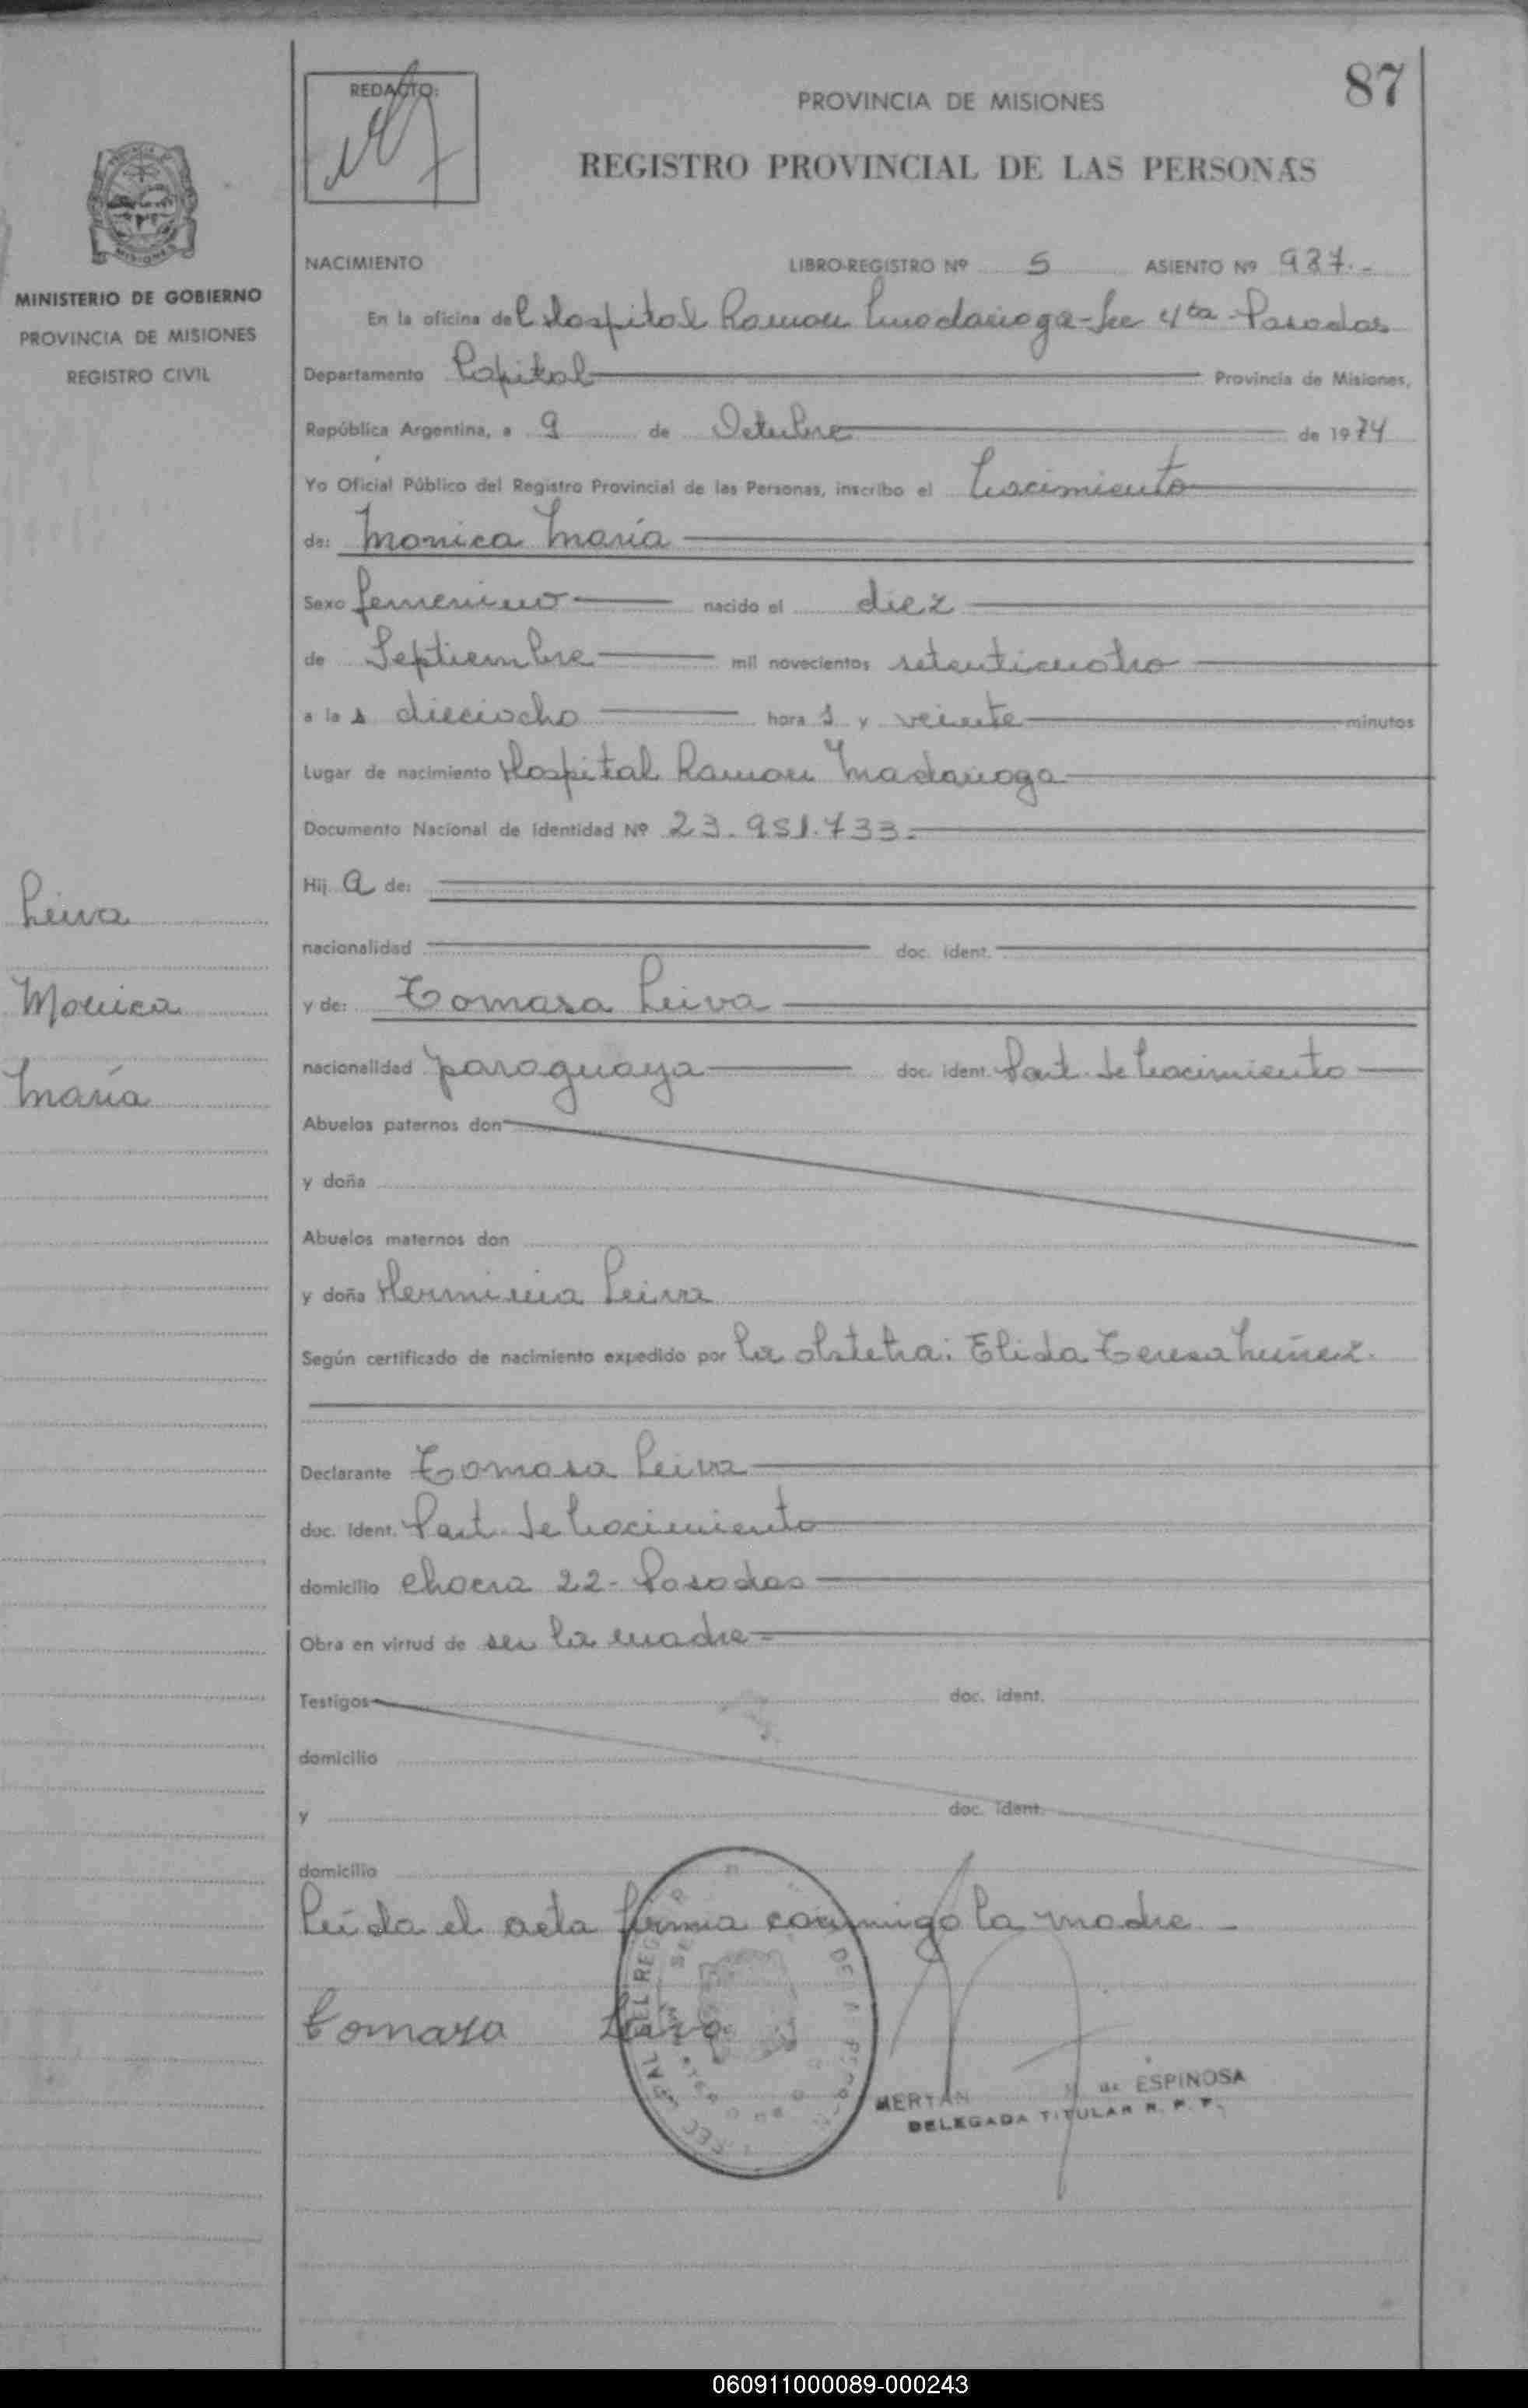 87
REDACTO:
PROVINCIA DE MISIONES
REGISTRO PROVINCIAL DE LAS PERSONAS
MISIONES
MINISTERIO DE GOBIERNO
PROVINCIA DE MISIONES
REGISTRO CIVIL
NACIMIENTO LIBRO-REGISTRO Nº 5 ASIENTO Nº 987.-
En la oficina del Hospital Ramon Madariaga - Sec 4ta Posadas
Departamento Capital Provincia de Misiones,
República Argentina, a 9 de Octubre de 1974
Yo Oficial Público del Registro Provincial de las Personas, inscribo el Nacimiento
de: Monica María
Sexo femenino nacido el diez
de Septiembre mil novecientos setenticuatro
a las dieciocho horas y veinte minutos
Lugar de nacimiento Hospital Ramon Madariaga
Documento Nacional de Identidad Nº 23.951.733.-
Hija de:
nacionalidad doc. ident.
y de: Tomasa Leiva
nacionalidad paraguaya doc. ident. Part. de Nacimiento
Abuelos paternos don
y doña
Abuelos maternos don
y doña Herminia Leiva
Según certificado de nacimiento expedido por la obstetra: Elida Teresa Nuñez.
Declarante Tomasa Leiva
doc. ident. Part. de Nacimiento
domicilio chacra 22 - Posadas
Obra en virtud de ser la madre -
Testigos doc. ident.
domicilio
y doc. ident.
domicilio
Leída el acta firma conmigo la madre -
Tomasa Leiva
de ESPINOSA
DELEGADA TITULAR R. P. P.
Leiva
Monica
María
060911000089-000243